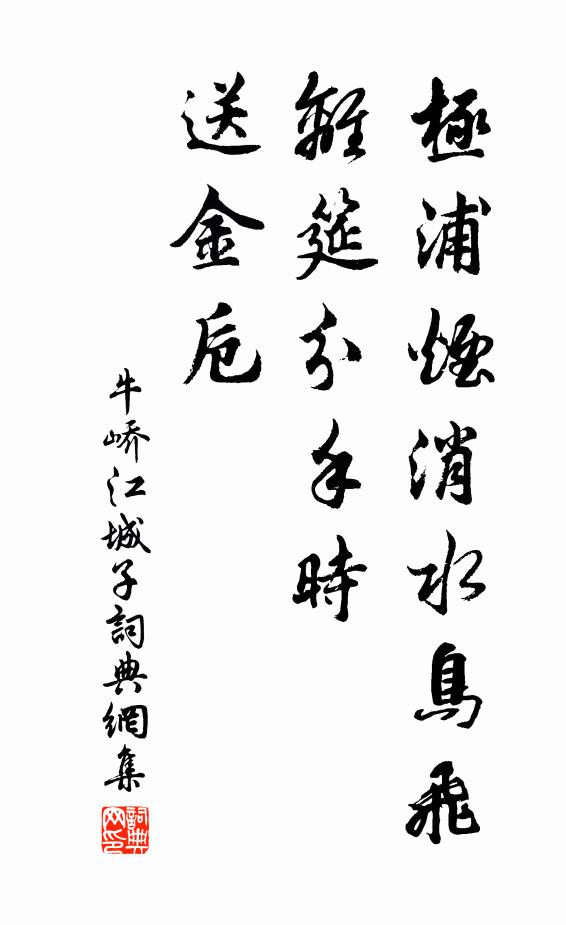 極浦煙消水鳥飛
離筵分手時
送金卮
牛嶠江城子詞典網集
詞典网印